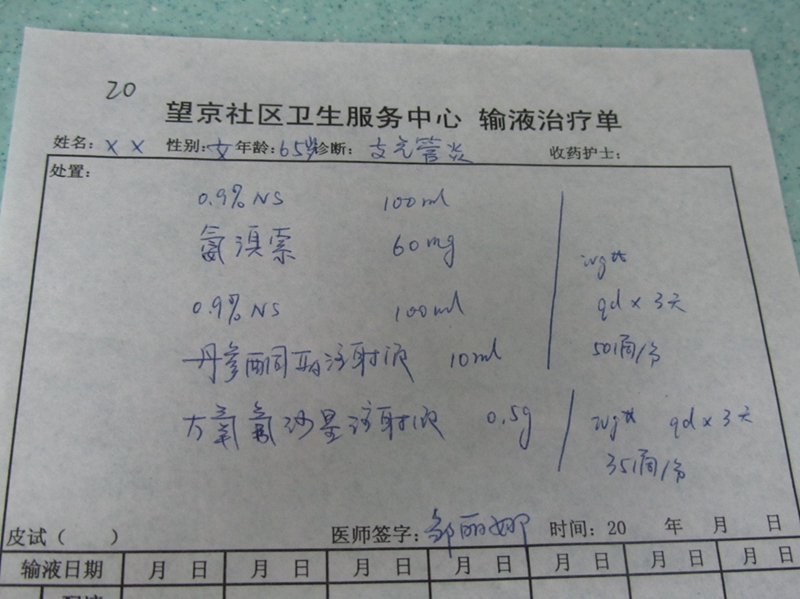 20
望京社区卫生服务中心 输液治疗单
姓名: X X 性别: 女 年龄: 65岁 诊断: 支气管炎 收药护士:
处置:
0.9% NS 100ml
氨溴索 60mg
0.9% NS 100ml
丹参酮ⅡA注射液 10ml
ivgtt
qd x 3天
50滴/分
左氧氟沙星注射液 0.5g
ivgtt qd x 3天
35滴/分
皮试( ) 医师签字: 邹丽娜 时间: 20 年 月 日
输液日期 月 日 月 日 月 日 月 日 月 日 月 日 月 日